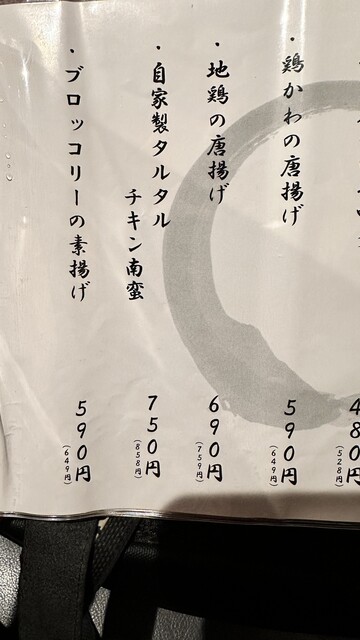 ・鶏かわの唐揚げ
590円
(649円)
・地鶏の唐揚げ
690円
(759円)
・自家製タルタル
チキン南蛮
750円
(858円)
・ブロッコリーの素揚げ
590円
(649円)
480円
(528円)